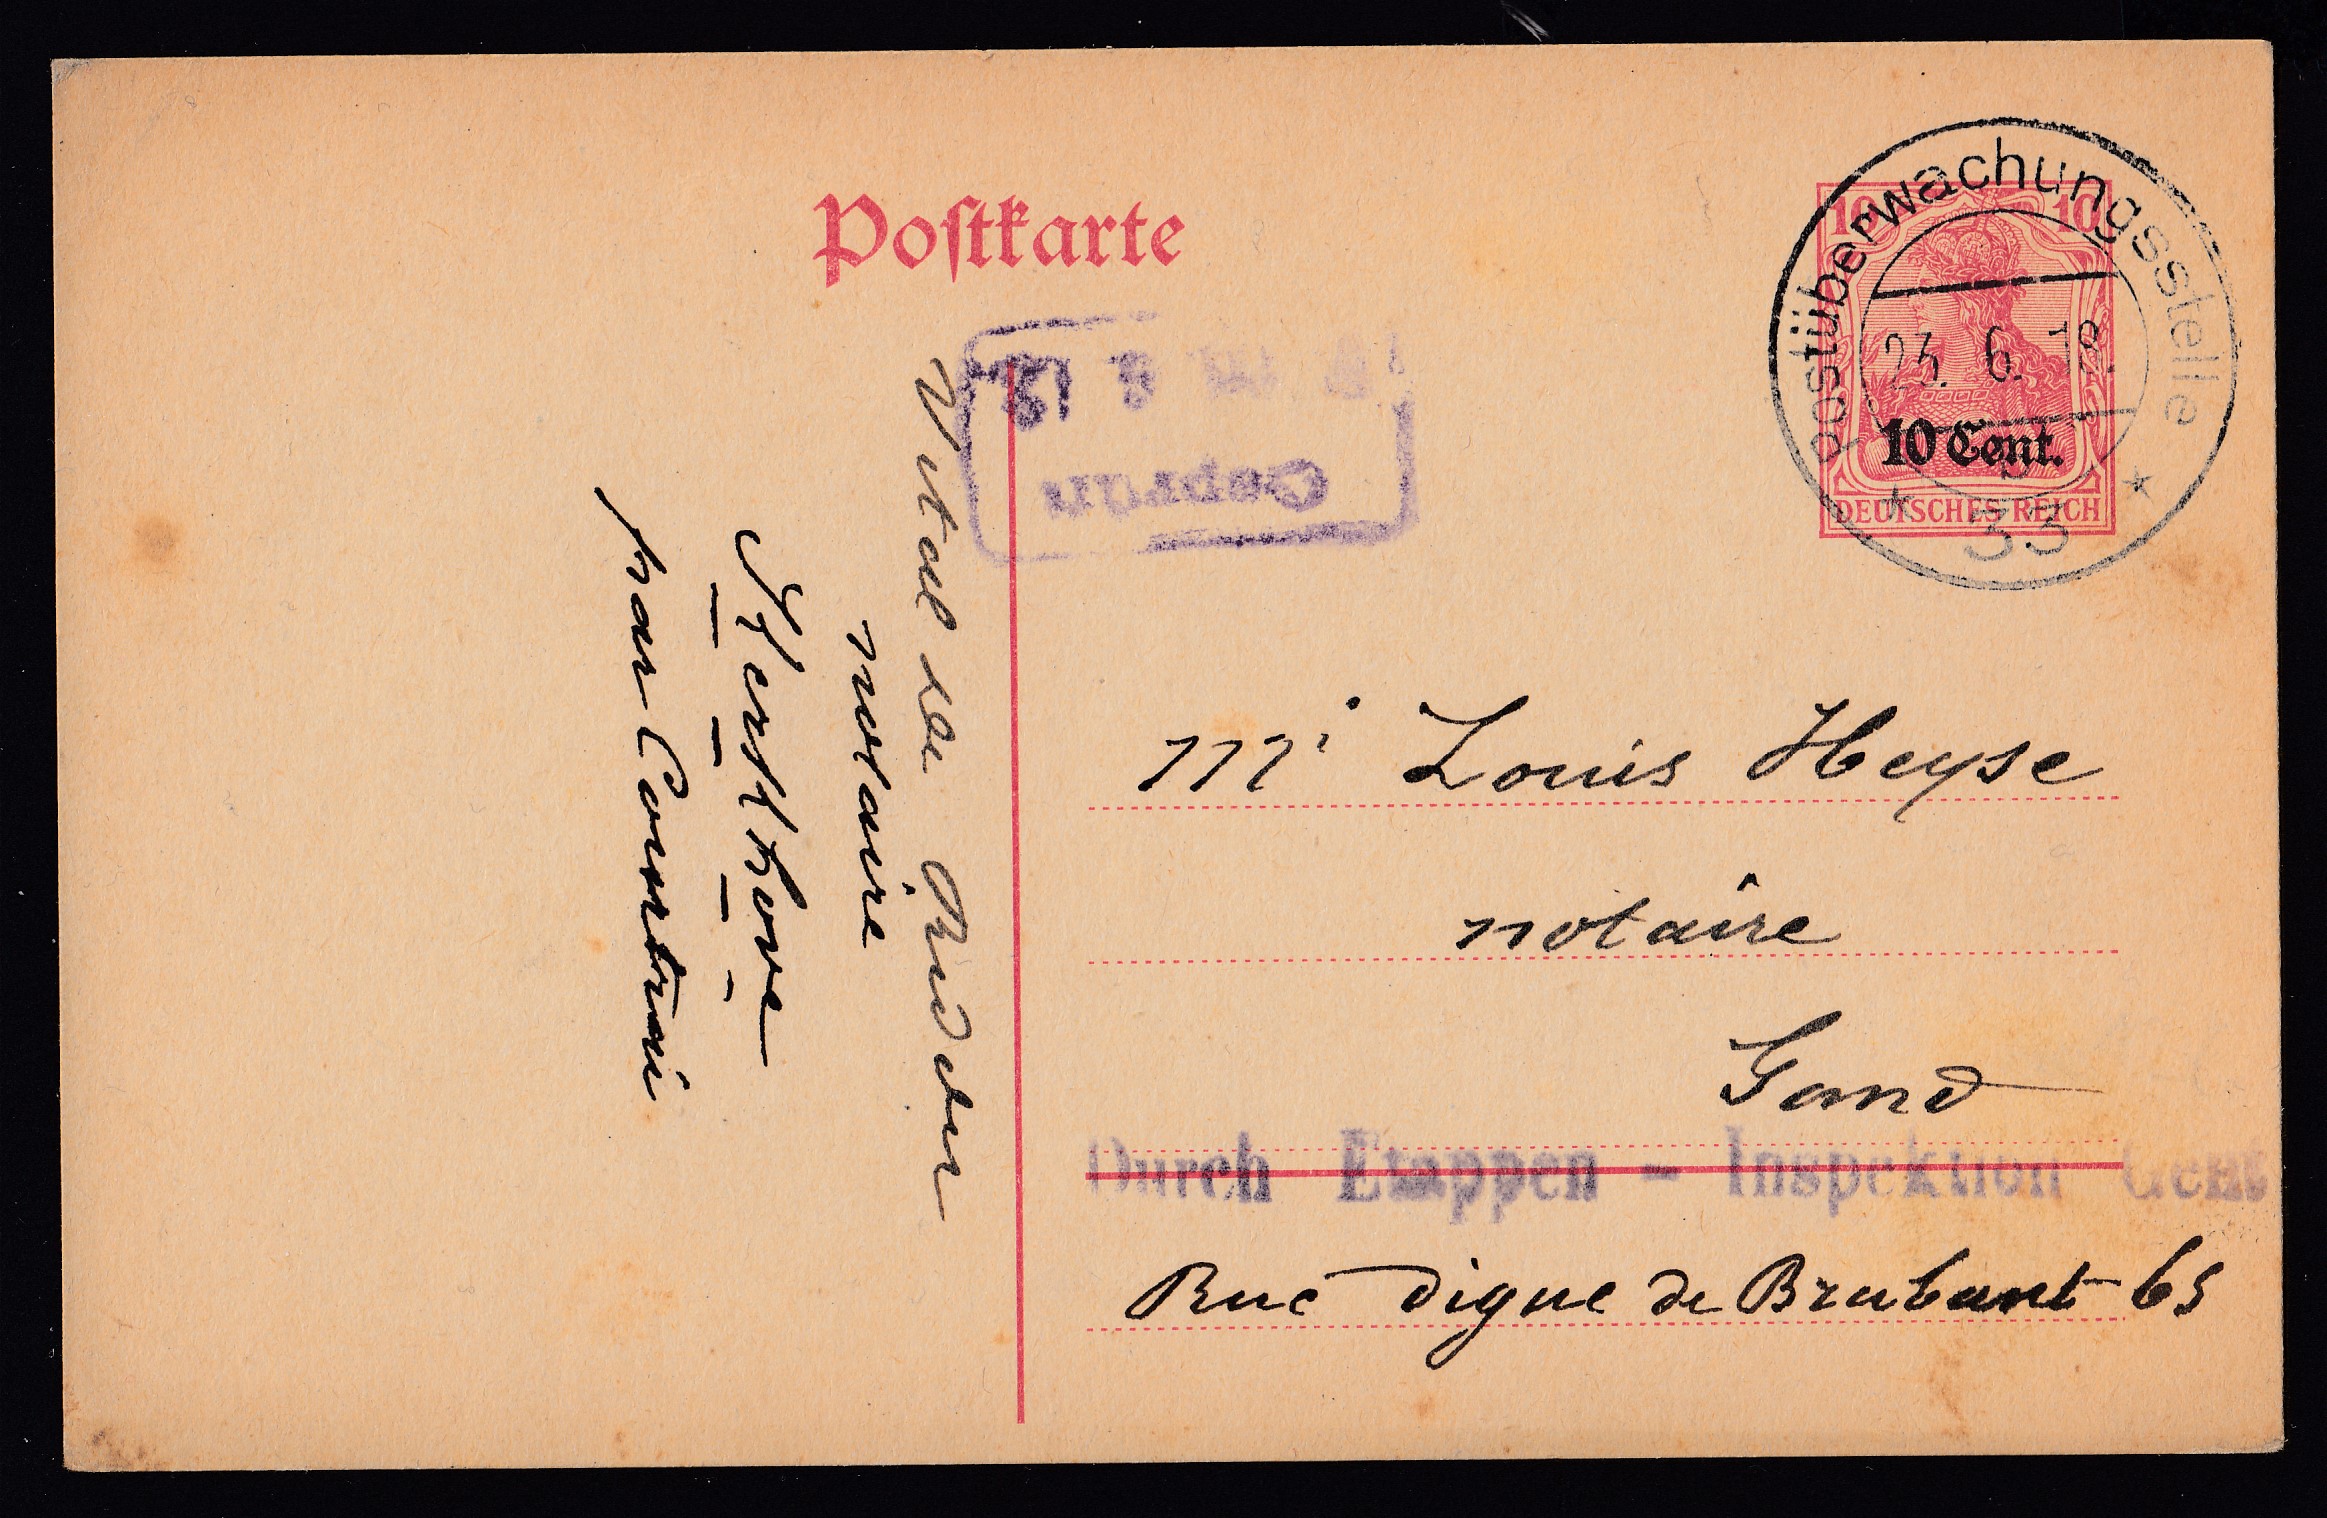 Postkarte
Postüberwachungsstelle
10 10
23. 6. 18
10 Cent.
DEUTSCHES REICH
* 33 *
Geprüft
Mr Louis Heyse
notaire
Gand
Durch Etappen - Inspektion Gent
Rue digue de Brabant 65
Vital De Ridder
notaire
par Courtrai